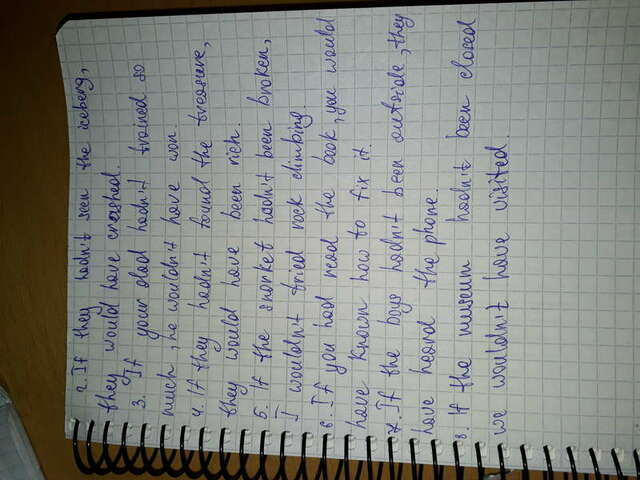 2. If they hadn't seen the iceberg,
they would have crashed.
3. If your dad hadn't trained so
much, he wouldn't have won.
4. If they hadn't found the treasure,
they would have been rich.
5. If the snorkel hadn't been broken,
I wouldn't tried rock climbing.
6. If you had read the book, you would
have known how to fix it.
7. If the boys hadn't been outside, they
have heard the phone.
8. If the museum hadn't been closed
we wouldn't have visited.